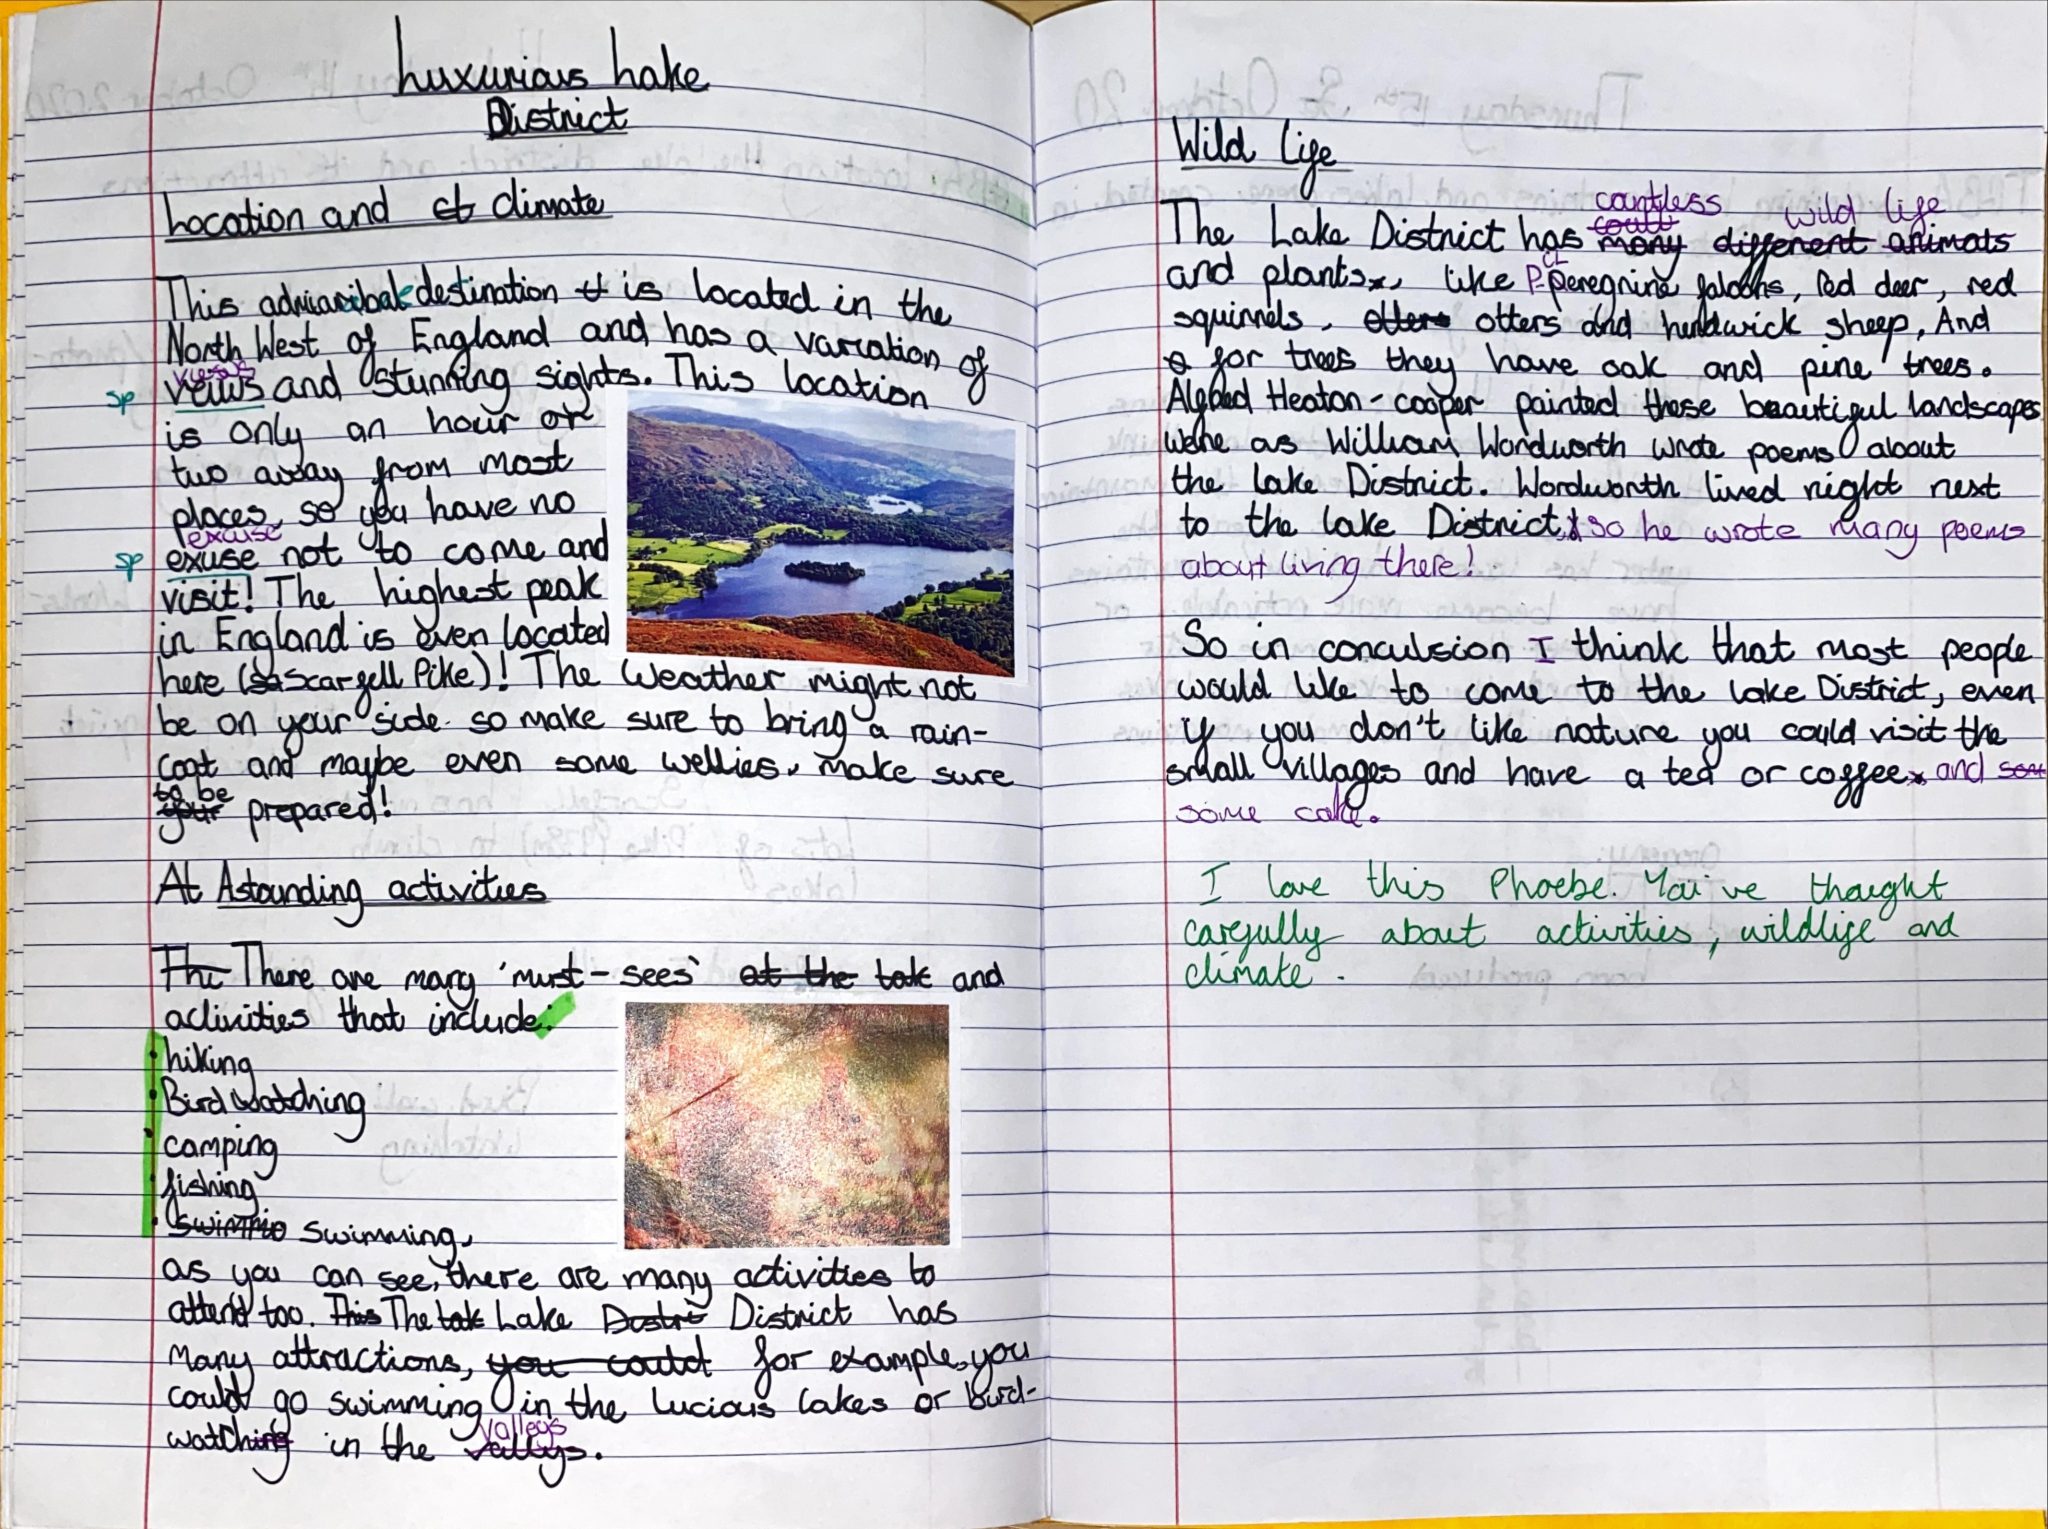 Luxurious Lake
District
Location and climate
This admirable destination is located in the
North West of England and has a variation of
views
veiws and stunning sights. This location
sp
is only an hour or
two away from most
places, so you have no
excuse
sp exuse not to come and
visit! The highest peak
in England is even located
here (Scarfell Pike)! The Weather might not
be on your side so make sure to bring a rain-
coat and maybe even some wellies, make sure
to be
your prepared!
At Astounding activities
The There are many 'must-sees' at the lak and
activities that include:
• hiking
• Bird watching
• camping
• fishing
• swimmin swimming,
as you can see, there are many activities to
attend too. This The lak Lake Distri District has
many attractions, you could for example, you
could go swimming in the lucious lakes or bird-
valleys
watching in the vallys.
Wild Life
countless wild life
The Lake District has many different animals
and plants, like peregrine falcons, red deer, red
squirrels, otters otters and herdwick sheep, And
for trees they have oak and pine trees.
Alfred Heaton-cooper painted these beautiful landscapes
were as William Wordworth wrote poems about
the lake District. Wordworth lived right next
to the lake District, so he wrote many poems
about living there!
So in conculsion I think that most people
would like to come to the lake District, even
if you don't like nature you could visit the
small villages and have a tea or coffee and som
some cake.
I love this Phoebe. You've thought
carefully about activities, wildlife and
climate.